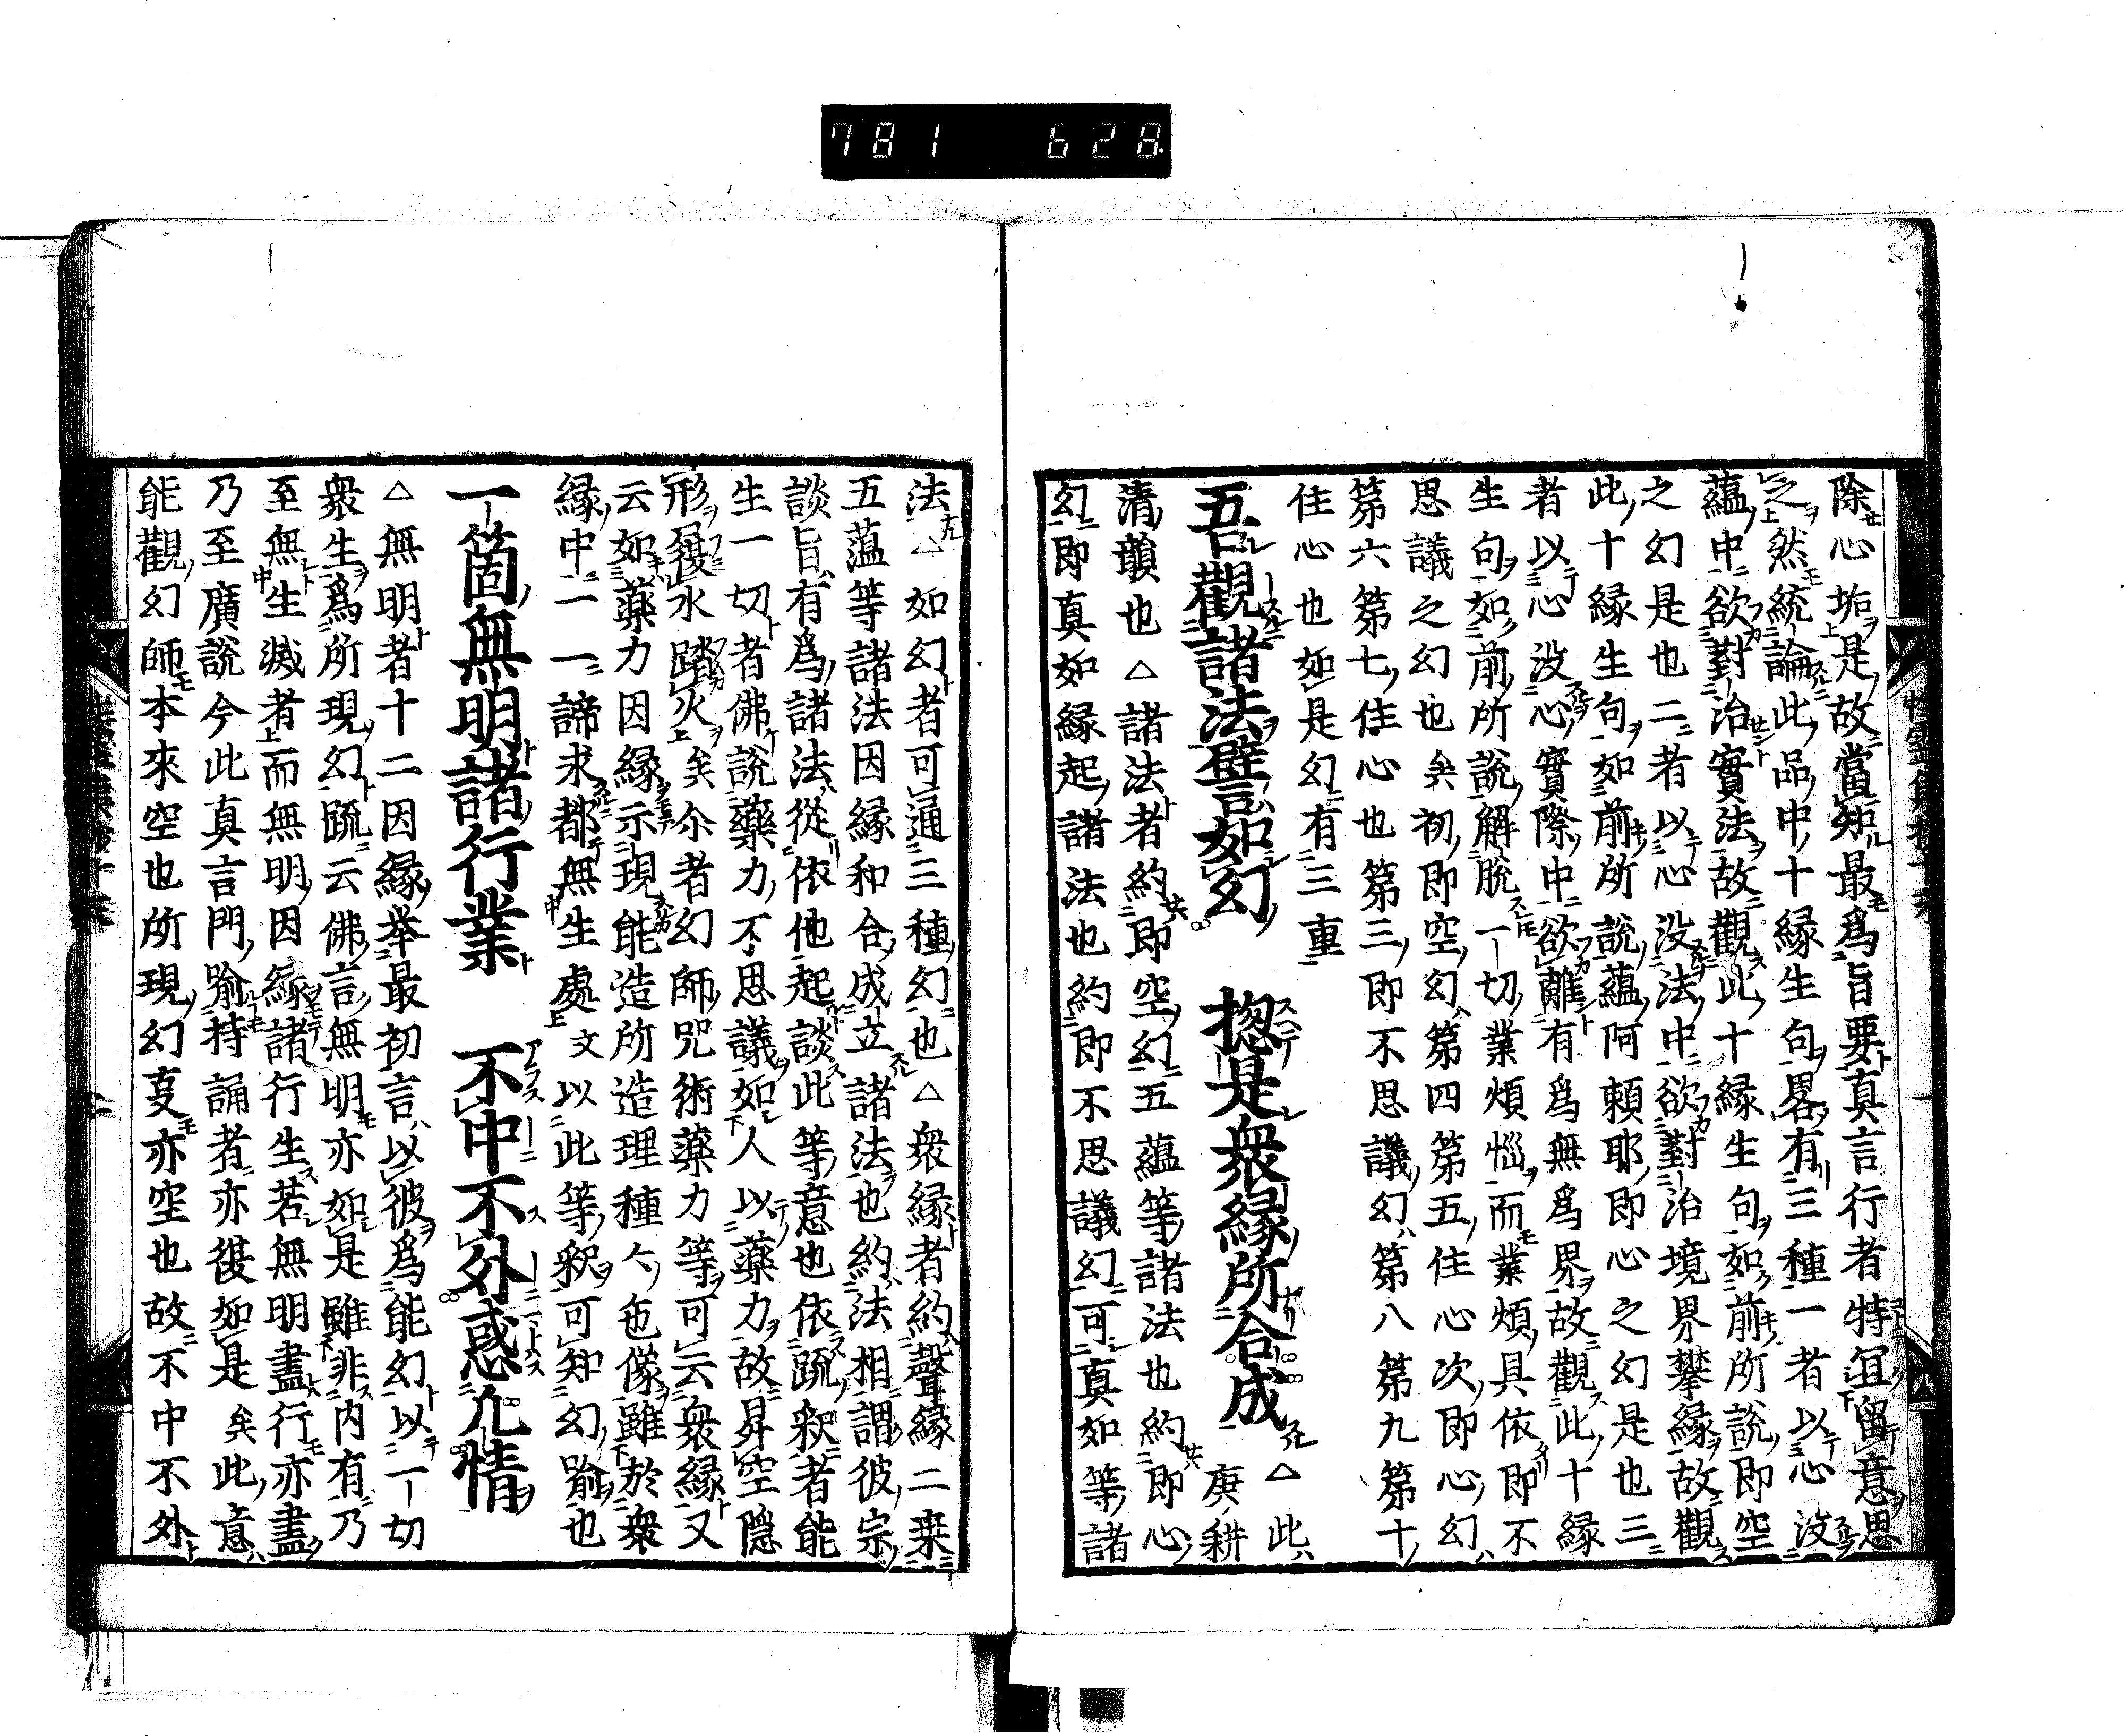 781 628
除心垢是故當知最為旨要真言行者特宜留意思
之然統論此品中十縁生句畧有三種一者以心沒
蘊中欲對治實法故觀此十縁生句如前所說即空
之幻是也二者以心沒法中欲對治境界攀縁故觀
此十縁生句如前所說蘊阿賴耶即心之幻是也三
者以心沒心實際中欲離有為無為界故觀此十縁
生句如前所說解脫一切業煩惱而業煩具依即不
思議之幻也矣初即空幻第四第五住心次即心幻
第六第七住心也第三即不思議幻第八第九第十
住心也如是幻有三重
吾觀諸法譬如幻　揔是衆縁所合成　△此
清韻也△諸法者約即空幻五蘊等諸法也約即心
庚耕
幻即真如縁起諸法也約即不思議幻可真如等諸
法△如幻者可通三種幻也△衆縁者約聲縁二乗
五蕰等諸法因縁和合成立諸法也約法相謂彼宗
談旨有為諸法從依他起談此等意也依䟽釈者能
生一切者佛說藥力不思議如人以藥力故昇空隠
形履水踏火矣尒者幻師咒術藥力等可云衆縁又
云如藥力因縁示現能造所造理種々色像雖於衆
縁中一一諦求都無生處文以此等釈可知幻喻也
一箇無明諸行業　不中不外惑凢情
△無明者十二因縁挙最初言以彼為能幻以一切
衆生為所現幻䟽云佛言無明亦如是雖非内有乃
至無生滅者而無明因縁諸行生若無明盡行亦盡
乃至廣說今此真言門喻持誦者亦復如是矣此意
能觀幻師本來空也所現幻叓亦空也故不中不外